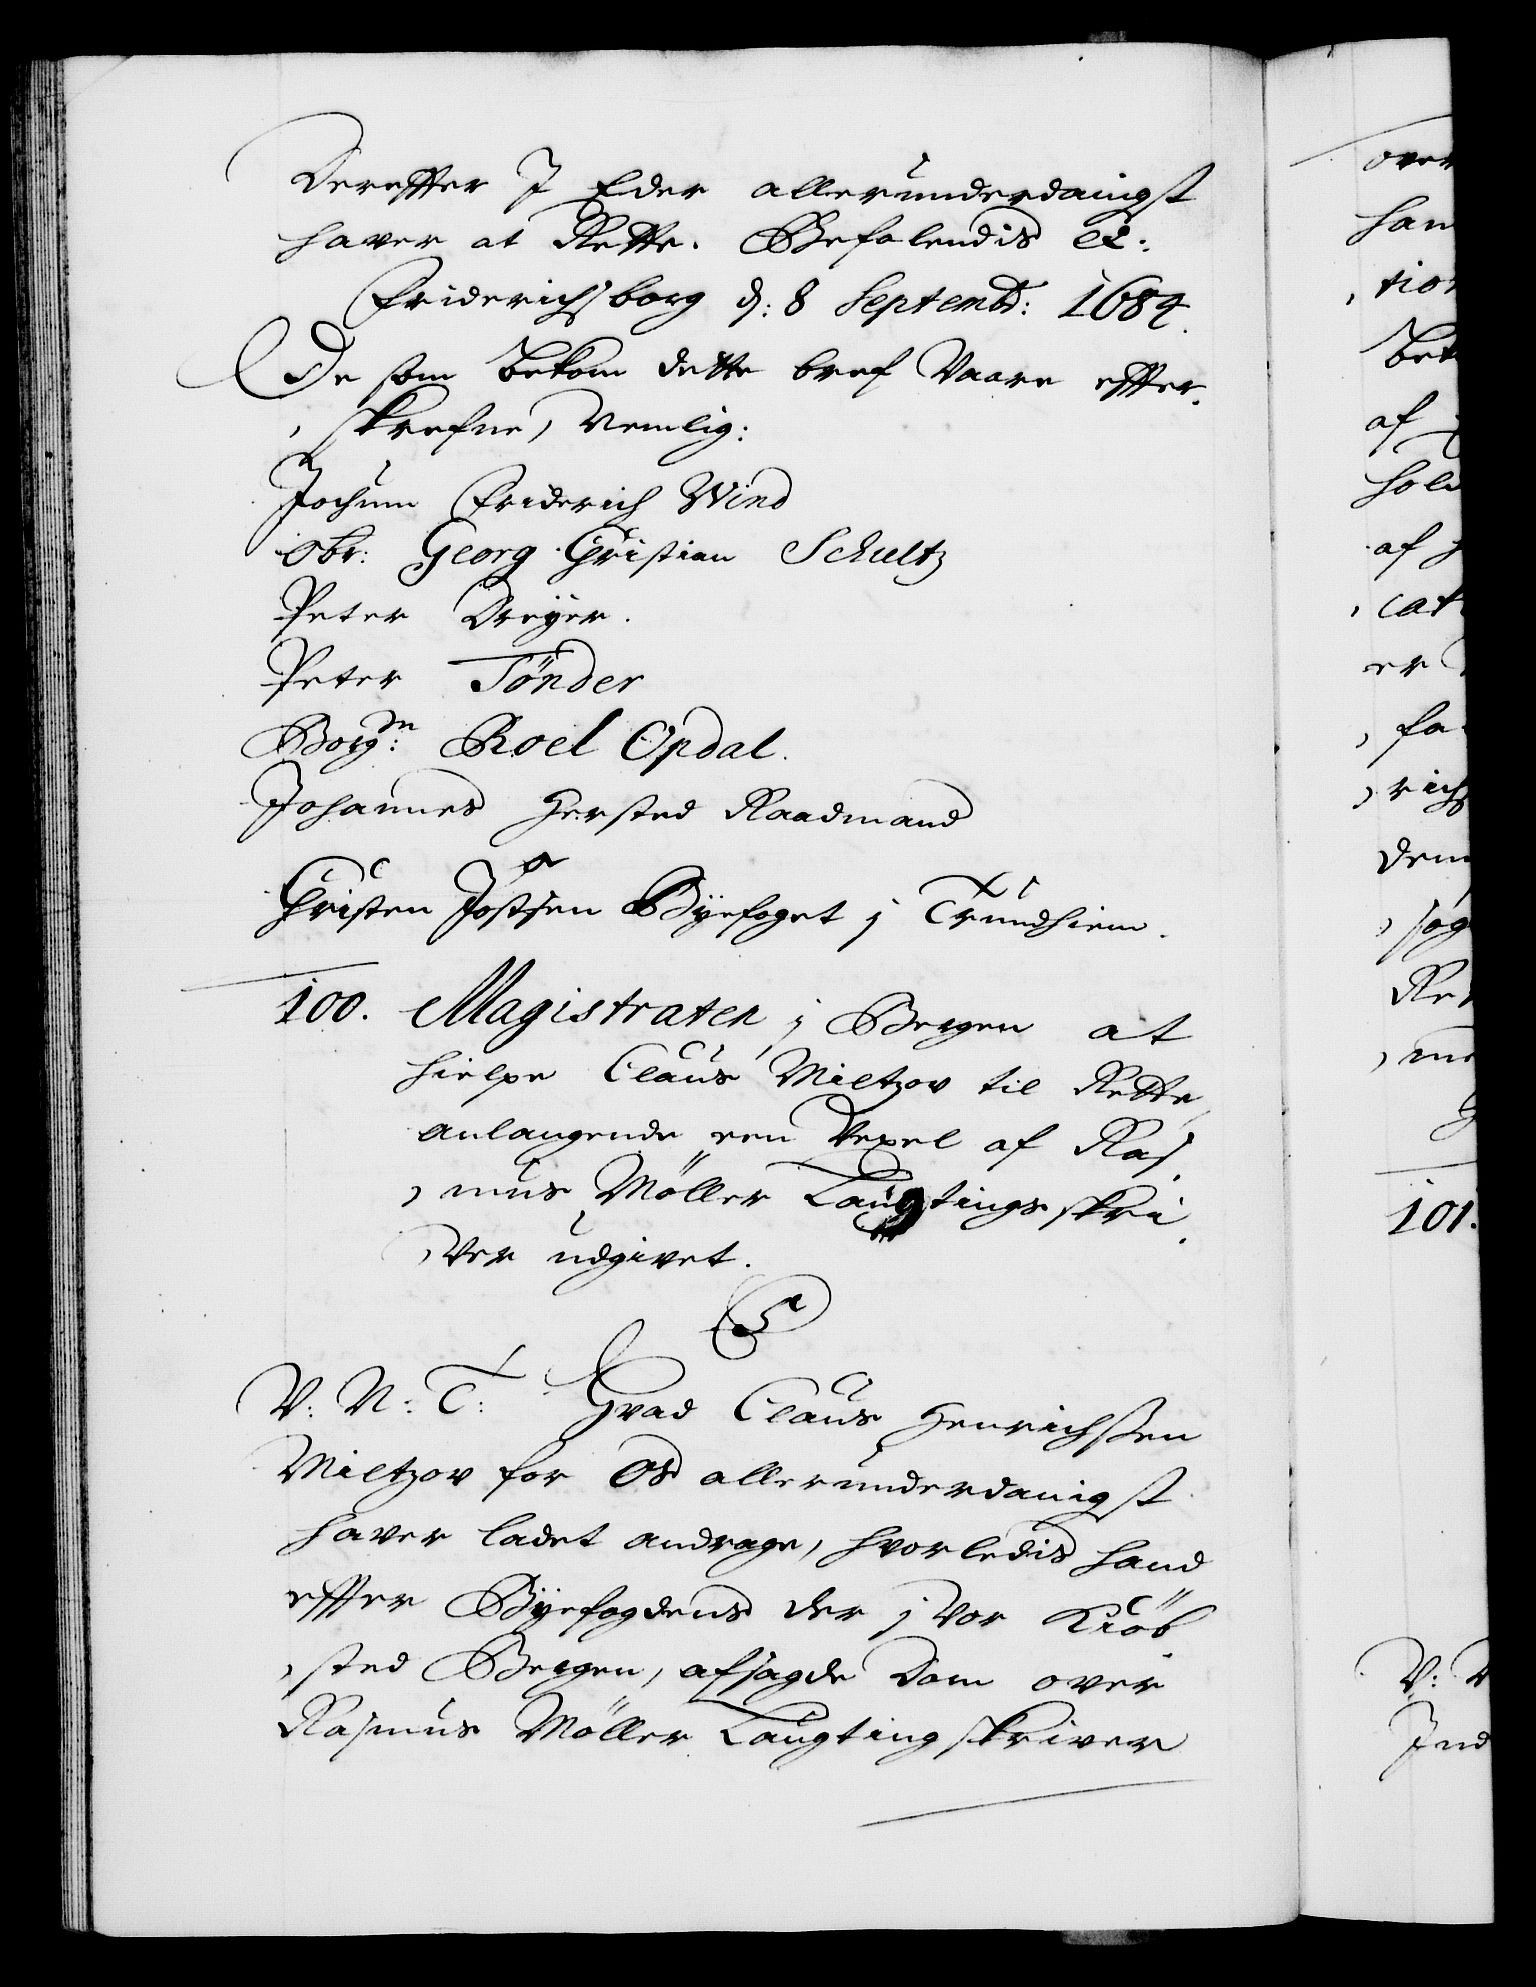 Derefter I Eder allerunderdanigst
haver at Rette. Befalendis etc:
Friderichsborg d: 8 Septembr: 1684.
De som bekom dette bref Vaare effter-
skrefne, Nemlig:
Jochum Friderich Wind
Obr: Georg Christian Schultz
Peter Dreÿer.
Peter Tönder
Borgm: Roel Opdal.
Johannes Hersted Raadmand
Christen Jostsen Bÿefoget j Trundhiem.
100. Magistraten j Bergen at
hielpe Claus Miltzov til Rette,
anlangende een Vexel af Ras-
mus Möller Laugtingsskri-
ver udgivet.
C5
V: N: T: Hvad Claus Henrichssen
Miltzov for Os allerunderdanigst
haver ladet andrage, hvorledis hand
effter Bÿefogdens der j vor Kiöb-
sted Bergen, afsagde Dom over
Rasmus Möller Laugtingskriver
over
han
tion
bet
af
hol
af
cat
er
fa
rich
dem
søg
Re
me
101.
V:
Ind